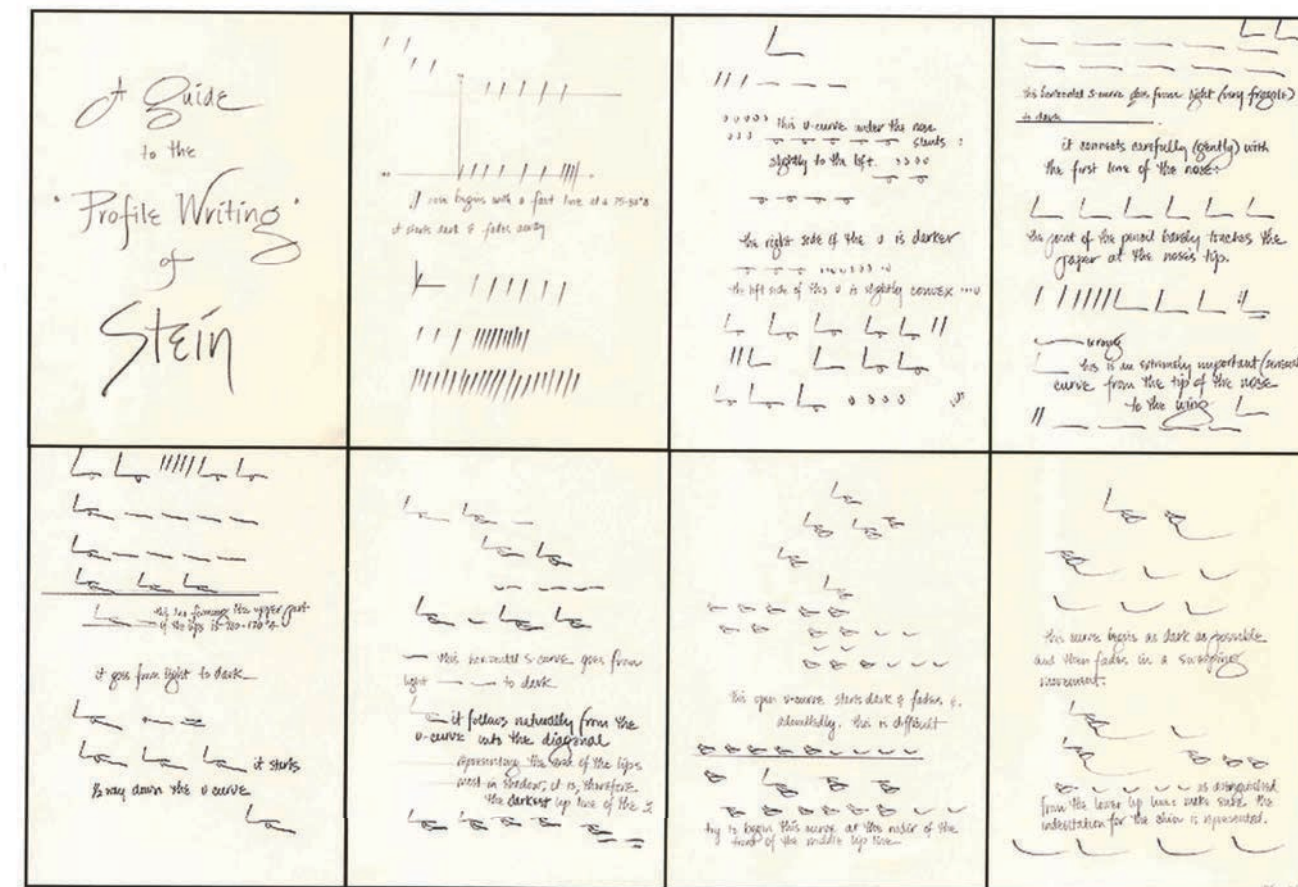 A Guide
to the
"Profile Writing"
of
Stein
begins with a fast line at a 75-80°
it starts dark & fades away
this u-curve under the nose
slants
slightly to the left.
the right side of the u is darker
the left side of this u is slightly convex
this horizontal s-curve goes from light (very fragile)
to dark
it connects carefully (gently) with
the first line of the nose.
the point of the pencil barely touches the
paper at the nose's tip.
wrong
this is an extremely important (sensual
curve from the tip of the nose
to the wing
this line forming the upper part
of the lips is
it goes from light to dark
it starts
½ way down the u curve
this horizontal s-curve goes from
light to dark
it follows naturally from the
u-curve into the diagonal
representing the area of the lips
most in shadow; it is, therefore
the darkest lip line of the
this open u-curve starts dark & fades &,
admittedly, this is difficult
try to begin this curve at the nadir of the
front of the middle lip line
this curve begins as dark as possible
and then fades in a sweeping
movement.
is distinguished
from the lower lip line; make sure the
indentation for the chin is represented.